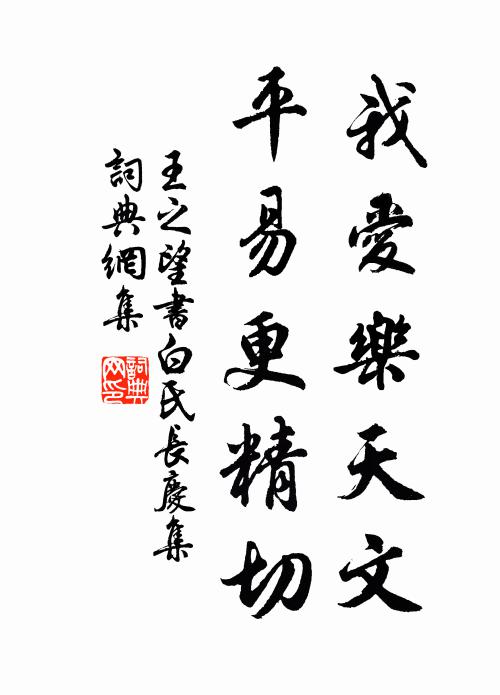 我愛樂天文
平易更精切
王之望書白氏長慶集
詞典網集
詞典网印